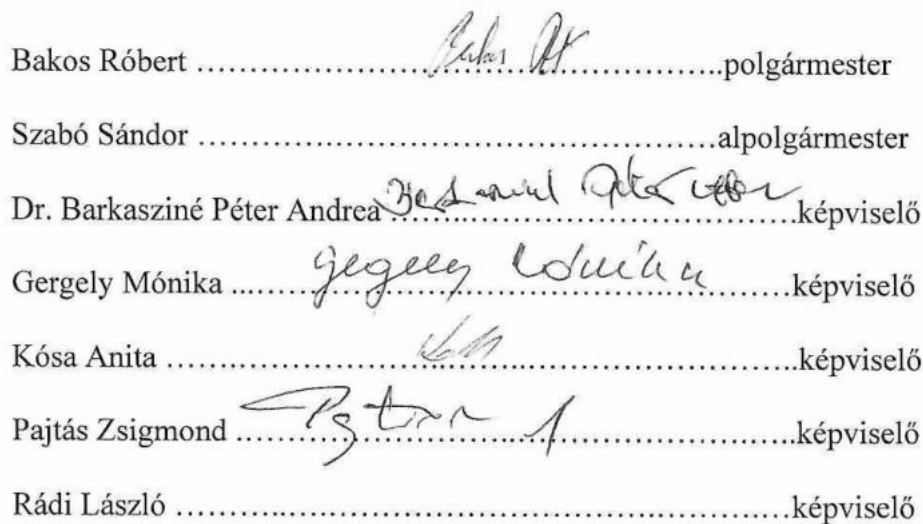 Bakos Róbert ………………………………………………polgármester
Szabó Sándor ………………………………………………alpolgármester
Dr. Barkasziné Péter Andrea………………………………………képviselő
Gergely Mónika ...Gergely Mónika……………képviselő
Kósa Anita ………………………………………………képviselő
Pajtás Zsigmond ………………………………………………képviselő
Rádi László ………………………………………………képviselő